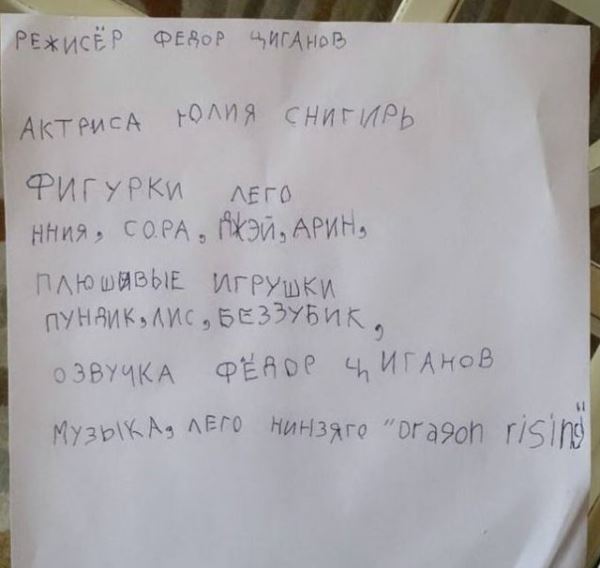 РЕЖИСЁР ФЕДОР ЦИГАНОВ
АКТРИСА ЮЛИЯ СНИГИРЬ
ФИГУРКИ ЛЕГО
ННИЯ, СОРА, ДЖЭЙ, АРИН,
ПЛЮШИВЫЕ ИГРУШКИ
ПУНДИК, ЛИС, БЕЗЗУБИК,
ОЗВУЧКА ФЁДОР ЦИГАНОВ
МУЗЫКА, ЛЕГО НИНЗЯГО "Dragon rising"